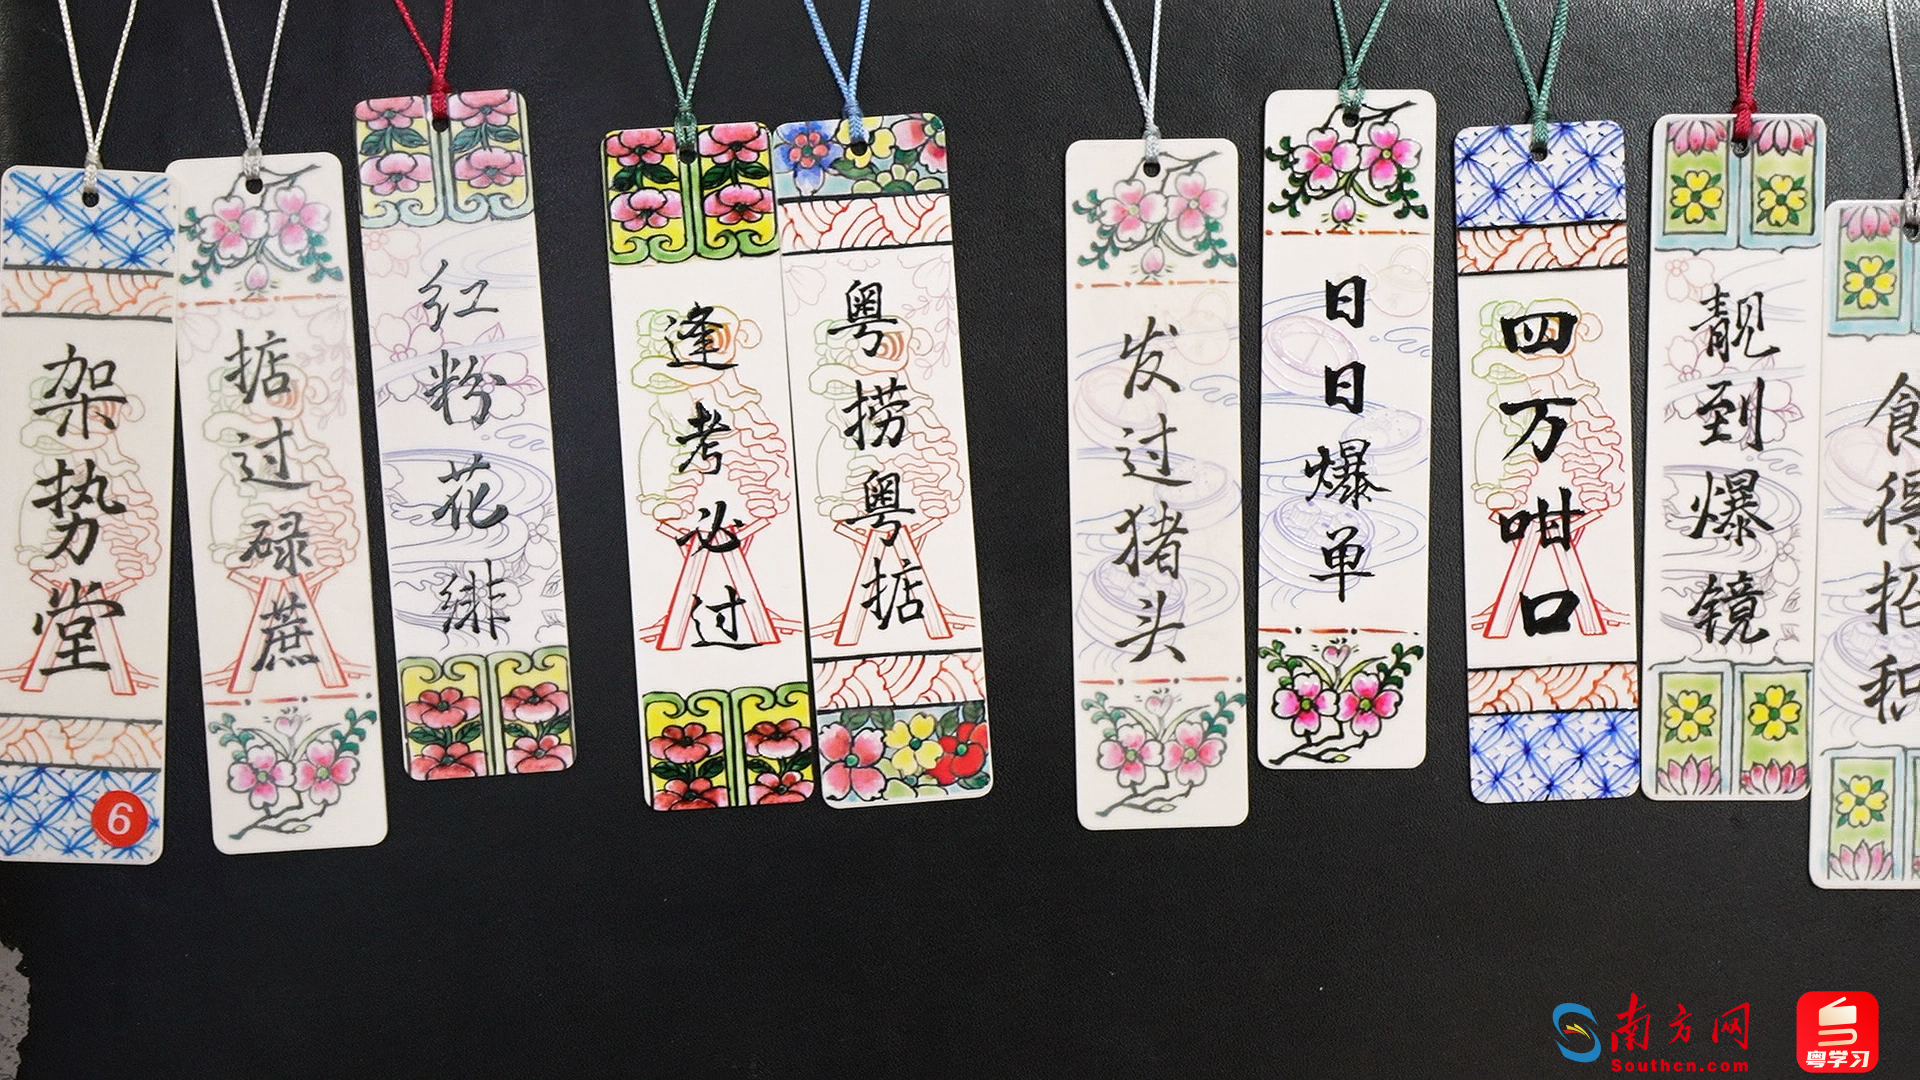 架势堂
掂过碌蔗
红粉花绯
逢考必过
粤捞粤掂
发过猪头
日日爆单
四万咁口
靓到爆镜
食得招积
6
南方网
Southcn.com
粤学习